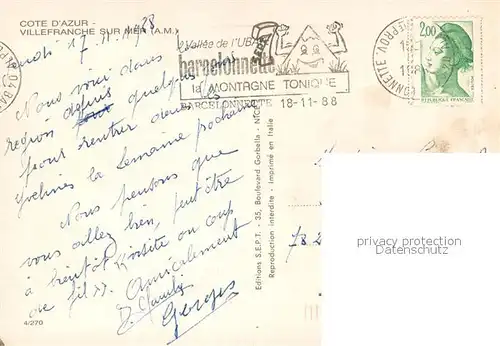 COTE D'AZUR -
VILLEFRANCHE SUR MER (A.M.)
17.11.1988
Nous voici dans
région depuis quelques
pour rentrer dans les
Yvelines la semaine prochaine
Nous pensons que
vous allez bien, peut être
à bientôt (visite ou coup
de fil).
Amicalement
Georges
4/270
Vallée de l'UBAYE
barcelonnette
la MONTAGNE TONIQUE
BARCELONNETTE 18-11-88
2,00
REPUBLIQUE FRANÇAISE
Editions S.E.P.T. - 35, Boulevard Gorbella - NICE
Reproduction interdite - Imprimé en Italie
78
privacy protection
Datenschutz